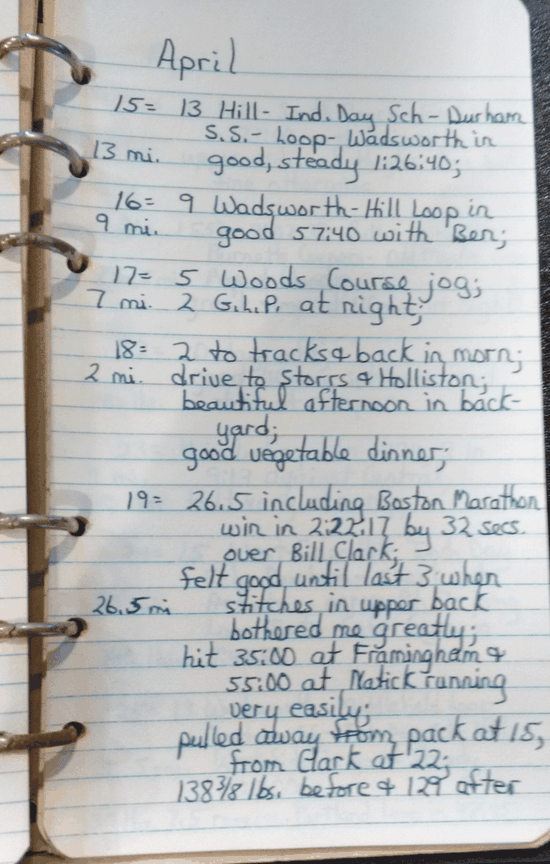 April
15= 13 Hill- Ind. Day Sch - Durham
S.S.- Loop- Wadsworth in
13 mi. good, steady 1:26:40;
16= 9 Wadsworth-Hill Loop in
9 mi. good 57:40 with Ben;
17= 5 Woods Course jog;
7 mi. 2 G.L.P. at night;
18= 2 to tracks & back in morn;
2 mi. drive to Storrs & Holliston;
beautiful afternoon in back-
yard;
good vegetable dinner;
19= 26.5 including Boston Marathon
win in 2:22:17 by 32 secs.
over Bill Clark;
felt good until last 3 when
26.5 mi stitches in upper back
bothered me greatly;
hit 35:00 at Framingham &
55:00 at Natick running
very easily;
pulled away from pack at 15,
from Clark at 22;
138 3/8 lbs. before & 129 after